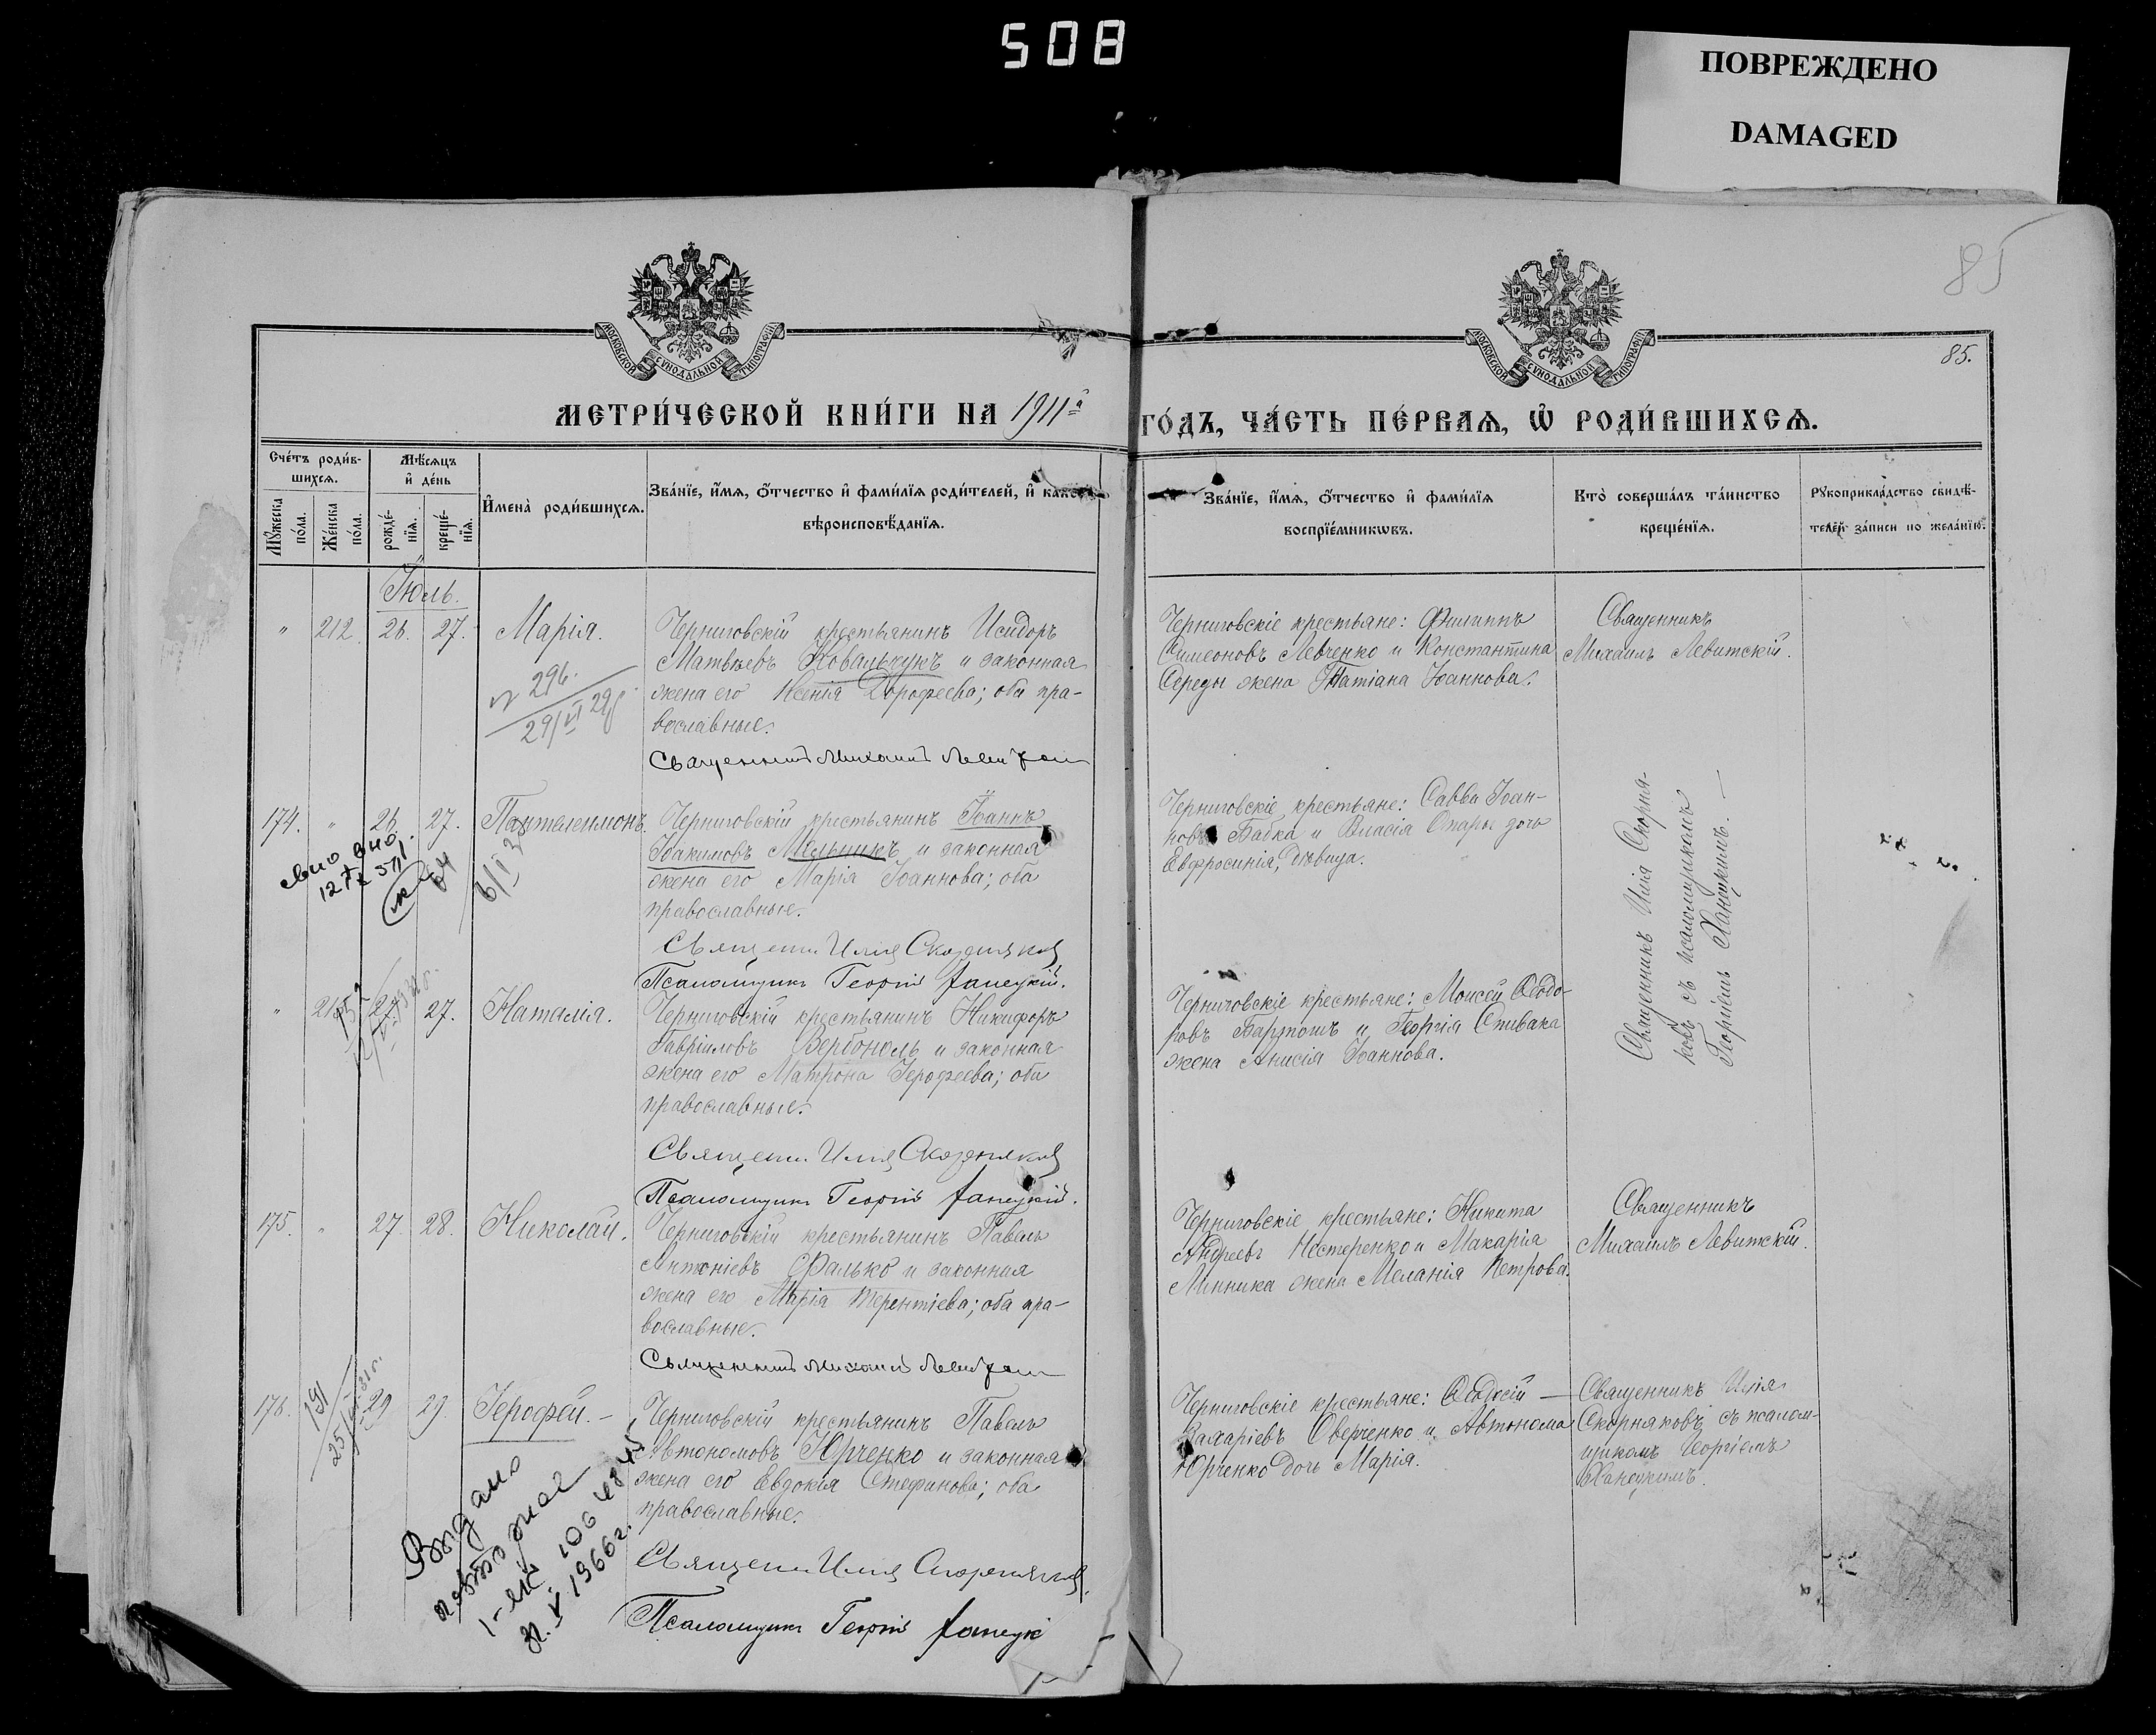 508
ПОВРЕЖДЕНО
DAMAGED
85
МОСКОВСКОЙ СѴНОДАЛЬНОЙ ТИПОГРАФІИ
МОСКОВСКОЙ СѴНОДАЛЬНОЙ ТИПОГРАФІИ
85.
МЕТРИ́ЧЕСКОЙ КНИ́ГИ НА 1911й
ГО́ДЪ, ЧА́СТЬ ПЕ́РВАѦ, Ѿ РОДИ́ВШИХСѦ.
Сче́тъ роди́в-
шихсѧ.
Мꙋ́жеска
по́ла.
Же́нска
по́ла.
Мѣ́сѧцъ
и҆ де́нь
рожде́-
нїѧ.
креще́-
нїѧ.
И҆мена̀ роди́вшихсѧ.
Зва́нїе, и҆́мѧ, ѻ҆́тчество и҆ фами́лїѧ роди́телей, и҆ како́гѡ
вѣроисповѣ́данїѧ.
Зва́нїе, и҆́мѧ, ѻ҆́тчество и҆ фами́лїѧ
воспрїе́мникѡвъ.
Кто̀ соверша́лъ та́инство
креще́нїѧ.
Рꙋкоприкла́дство свидѣ́-
телей за́писи по жела́нїю.
Іюль.
" 212. 26. 27. Марія.
Черниговскій крестьянинъ Исидоръ
Матвѣевъ Ковальчукъ и законная
жена его Ксенія Дорофеева; оба пра-
вославные.
Священникъ Михаилъ Левитскій
№ 296.
29/VI 29г.
Черниговскіе крестьяне: Филиппъ
Симеоновъ Левченко и Константина
Середы жена Татіана Іоаннова.
Священникъ
Михаилъ Левитскій.
174. " 26. 27. Пантелеимонъ.
Черниговскій крестьянинъ Іоаннъ
Іоакимовъ Мельникъ и законная
жена его Марія Іоаннова; оба
православные.
Священ. Илія Скорняковъ
Псаломщикъ Георгій Ханецкій.
Черниговскіе крестьяне: Савва Іоан-
новъ Бабка и Власія Опары дочь
Евфросинія, дѣвица.
Священникъ Илія Скорня-
ковъ съ псаломщикомъ
Георгіемъ Ханецкимъ. —
" 215. 27. 27. Наталія.
Черниговскій крестьянинъ Никифоръ
Гавріиловъ Вербополь и законная
жена его Матрона Іерофеева; оба
православные.
Священ. Илія Скорняковъ
Псаломщикъ Георгій Ханецкій.
Черниговскіе крестьяне: Моисей Ѳеодо-
ровъ Бартошъ и Георгія Спивака
жена Анисія Іоаннова.
175. " 27. 28. Николай.
Черниговскій крестьянинъ Павелъ
Антоніевъ Фалько и законная
жена его Марія Терентіева; оба пра-
вославные.
Священникъ Михаилъ Левитскій
Черниговскіе крестьяне: Никита
Андреевъ Нестеренко и Макарія
Линника жена Меланія Петрова.
Священникъ
Михаилъ Левитскій.
176. 29 29. Іерофей. —
Черниговскій крестьянинъ Павелъ
Автономовъ Юрченко и законная
жена его Евдокія Стефанова; оба
православные.
Священ. Илія Скорняковъ.
Псаломщикъ Георгій Ханецкі
191
25/
31г.
Выдано
повторное
1-ЕК 106
V 1966г.
Черниговскіе крестьяне: Ѳеодосій —
Захаріевъ Оверченко и Автонома
Юрченко дочь Марія.
Священникъ Илія
Скорняковъ съ псалом-
щикомъ Георгіемъ
Ханецкимъ.